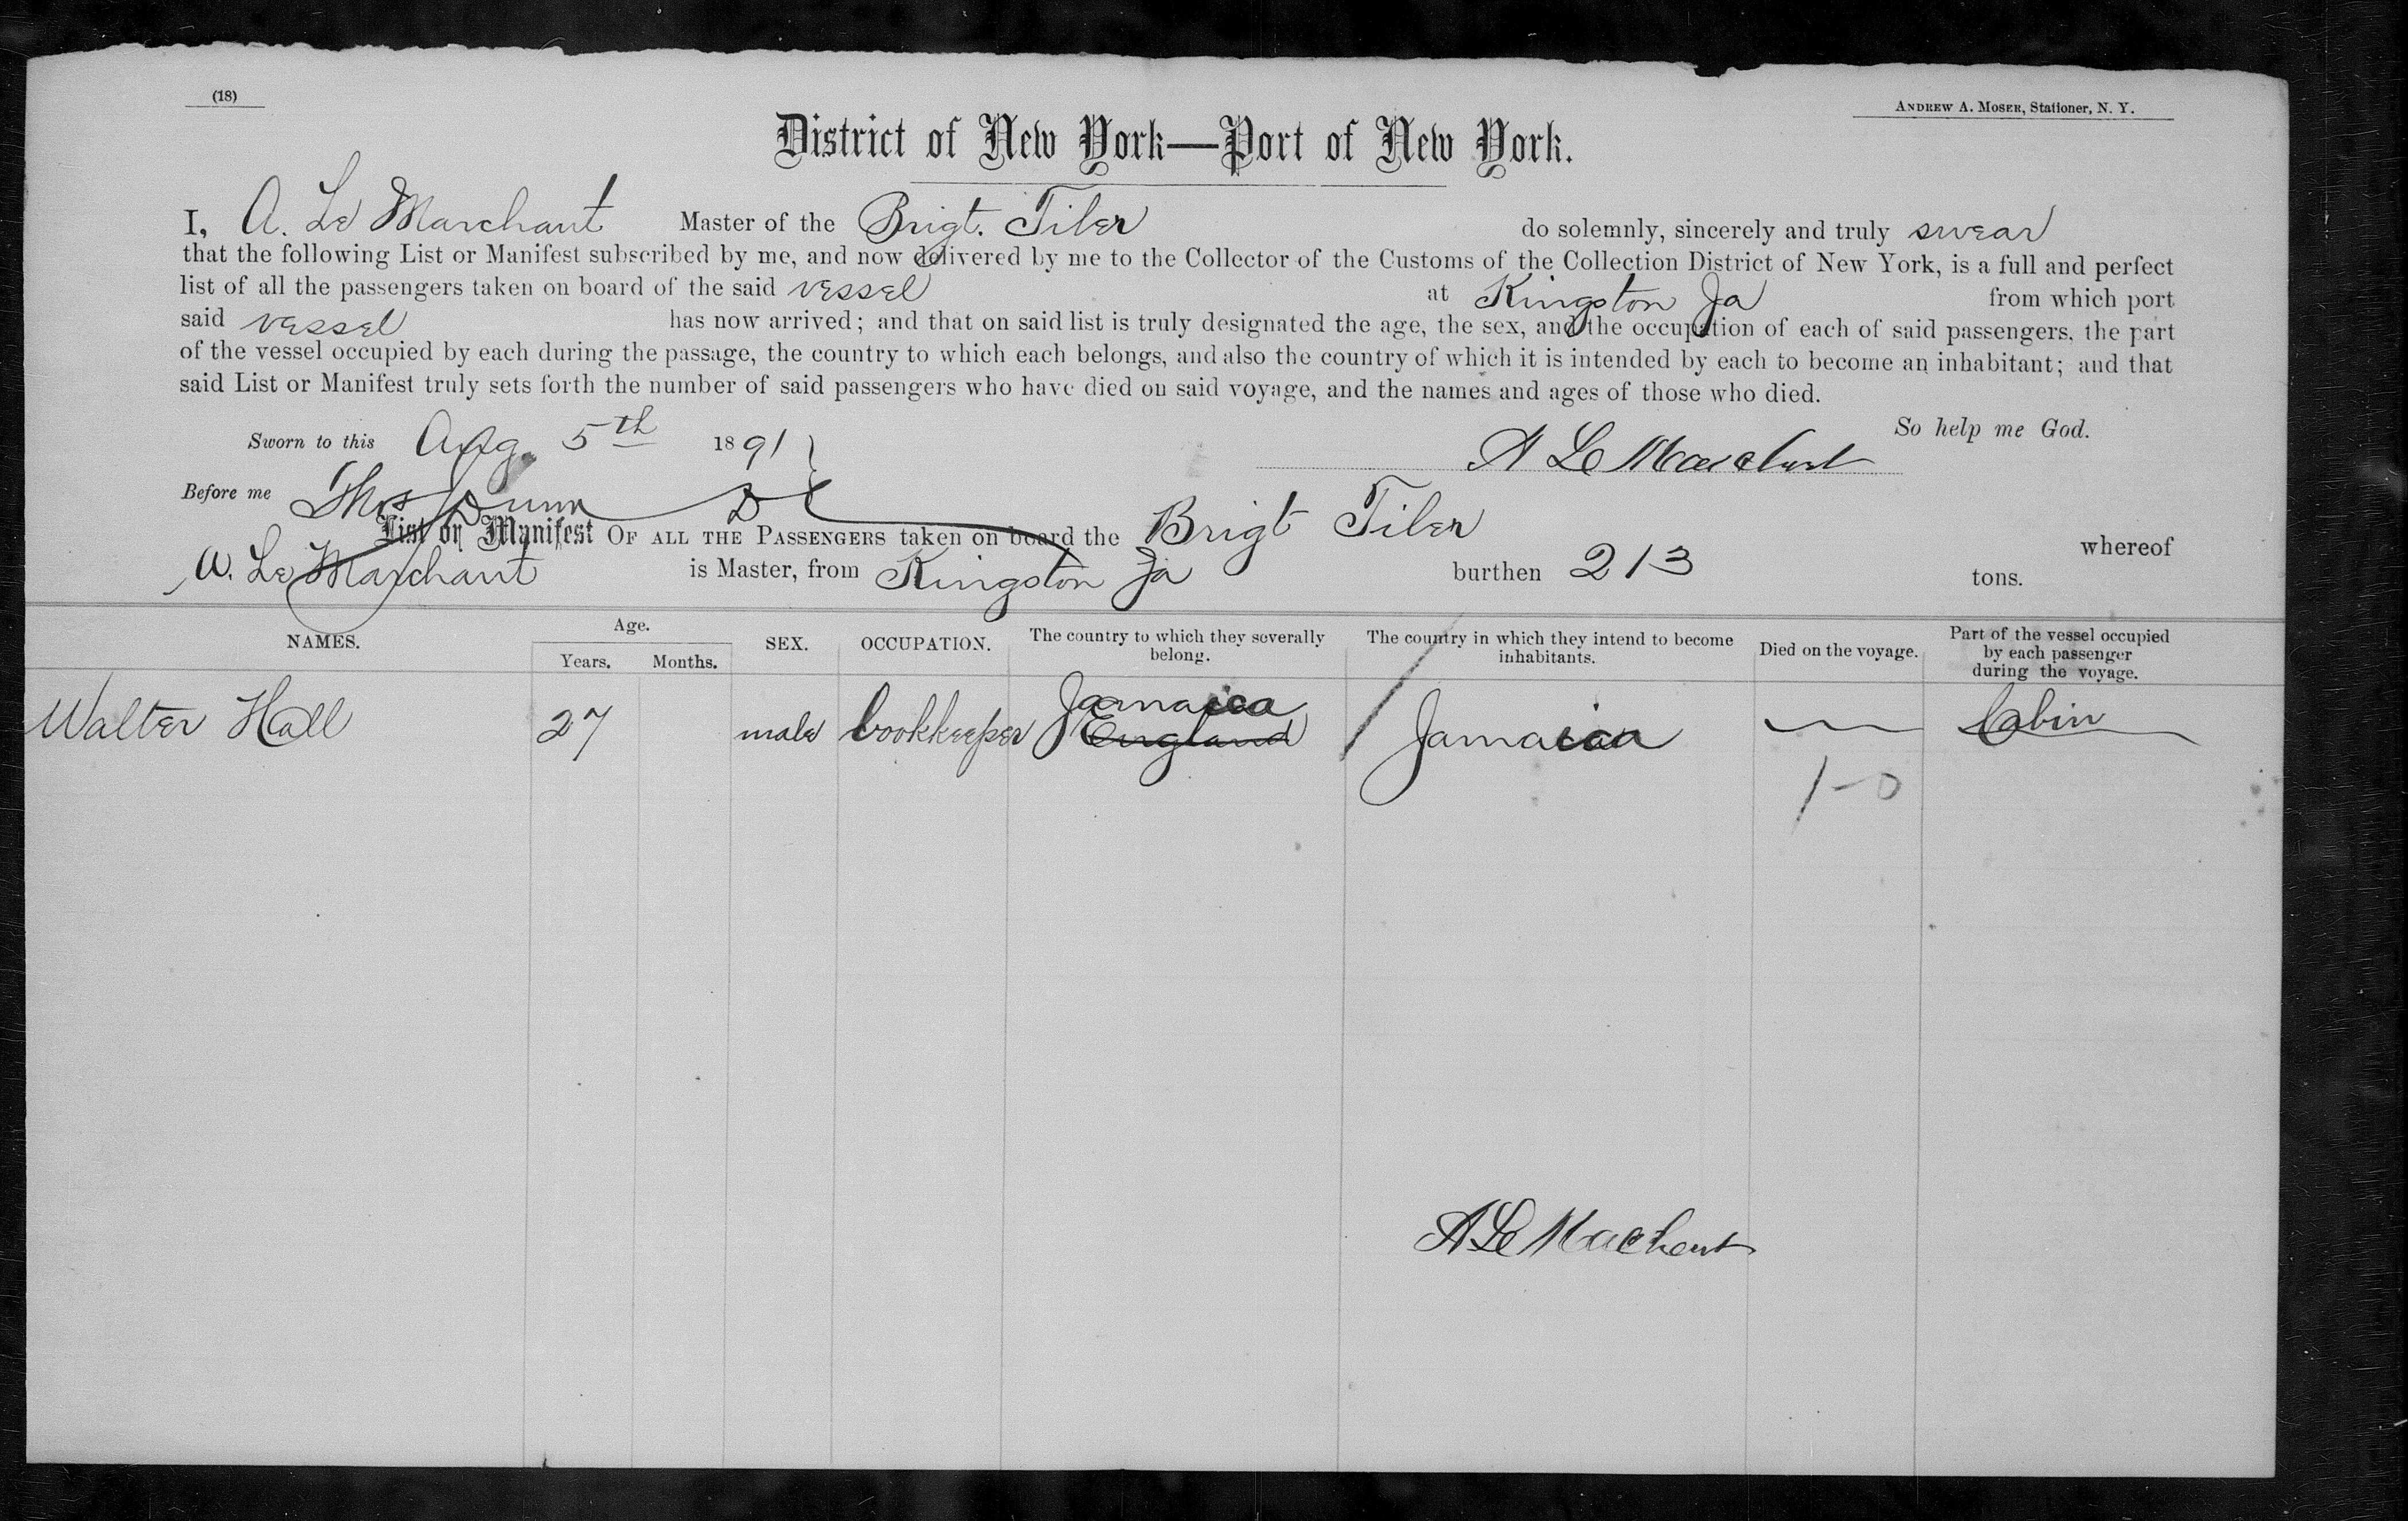 (18)
ANDREW A. MOSER, Stationer, N. Y.
District of New York—Port of New York.
I, A. Le Marchant Master of the Brigt. Tiber do solemnly, sincerely and truly swear
that the following List or Manifest subscribed by me, and now delivered by me to the Collector of the Customs of the Collection District of New York, is a full and perfect
list of all the passengers taken on board of the said vessel at Kingston Ja from which port
said vessel has now arrived; and that on said list is truly designated the age, the sex, and the occupation of each of said passengers, the part
of the vessel occupied by each during the passage, the country to which each belongs, and also the country of which it is intended by each to become an inhabitant; and that
said List or Manifest truly sets forth the number of said passengers who have died on said voyage, and the names and ages of those who died.
So help me God.
Sworn to this Aug. 5th 1891
A Le Marchant
Before me Thos Dunn D C
List or Manifest OF ALL THE PASSENGERS taken on board the Brigt Tiber whereof
A. Le Marchant is Master, from Kingston Ja burthen 213 tons.
NAMES. Age. Years. Months. SEX. OCCUPATION. The country to which they severally belong. The country in which they intend to become inhabitants. Died on the voyage. Part of the vessel occupied by each passenger during the voyage.
Jamaica
Walter Hall 27 male bookkeeper England Jamaica — Cabin
1-0
A Le Marchant